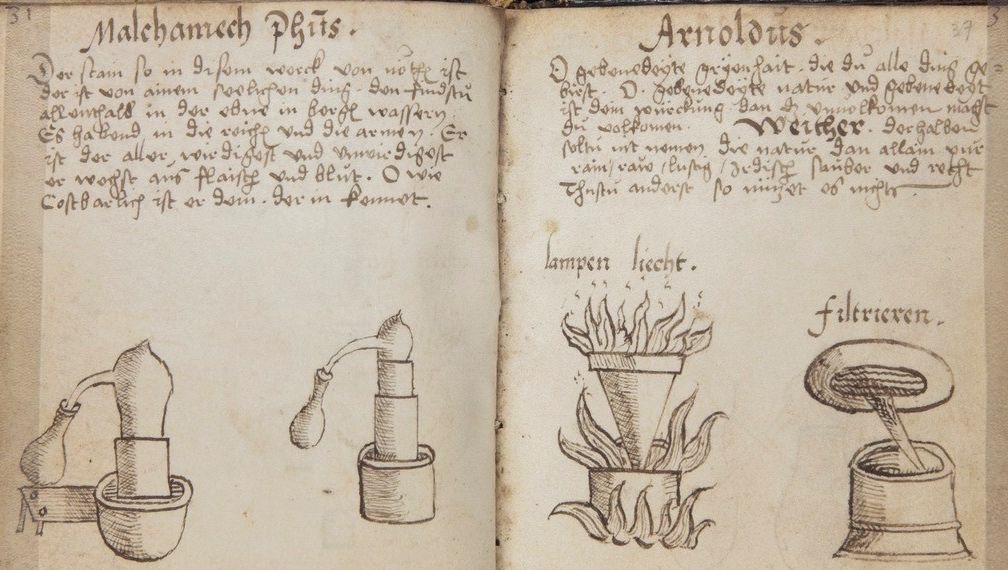 31
Malchamech Phûs.
Der stain so in disem werck von nöten ist
der ist von ainem seelichen ding. den findstu
allenthalb in der ebne in bergl wassern
Es habend in die reichen und die armen. Er
ist der aller wirdigest und unwirdigest
er wechst aus flaisch und blut. O wie
Costbarlich ist er dem. der in kennet.
Arnoldus.
O gebenedeyte grienhait. die du alle ding ge-
birst. O. gebenedeyte natur und gebenedeyt
ist dein würcking. dan das unvolkomen magst
du volkomen. Weicher. derhalben
soltu nit nemen die natur dan allain pur
rain/rauw/lustig/irdisch sauber und recht
Thustu anderst so nützet es nichts
lampen liecht.
filtrieren.